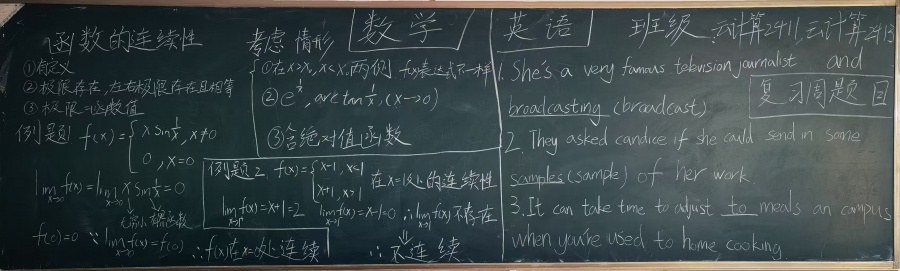 函数的连续性
①有定义
②极限存在,左右极限存在且相等
③极限=函数值
例题1 f(x)={x sin 1/x, x≠0
0, x=0
lim x→0 f(x)=lim x→0 x sin 1/x=0
无穷小 有界函数
f(0)=0 ∵lim x→0 f(x)=f(0)
∴f(x)在x=0处连续
考虑情形
数学
①在x>x₀, x<x₀两侧, f(x)表达式不一样
②e^(1/x), arctan 1/x, (x→0)
③含绝对值函数
例题2. f(x)={x-1, x<1
x+1, x>1
在x=1处的连续性
lim x→1 f(x)=x+1=2 lim x→1 f(x)=x-1=0 ∴lim x→1 f(x)不存在
∴不连续
英语
班级:云计算2411,云计算2413
复习周题目
1. She's a very famous television journalist and
broadcasting (broadcast)
2. They asked candice if she could send in some
samples (sample) of her work.
3. It can take time to adjust to meals on campus
when you're used to home cooking